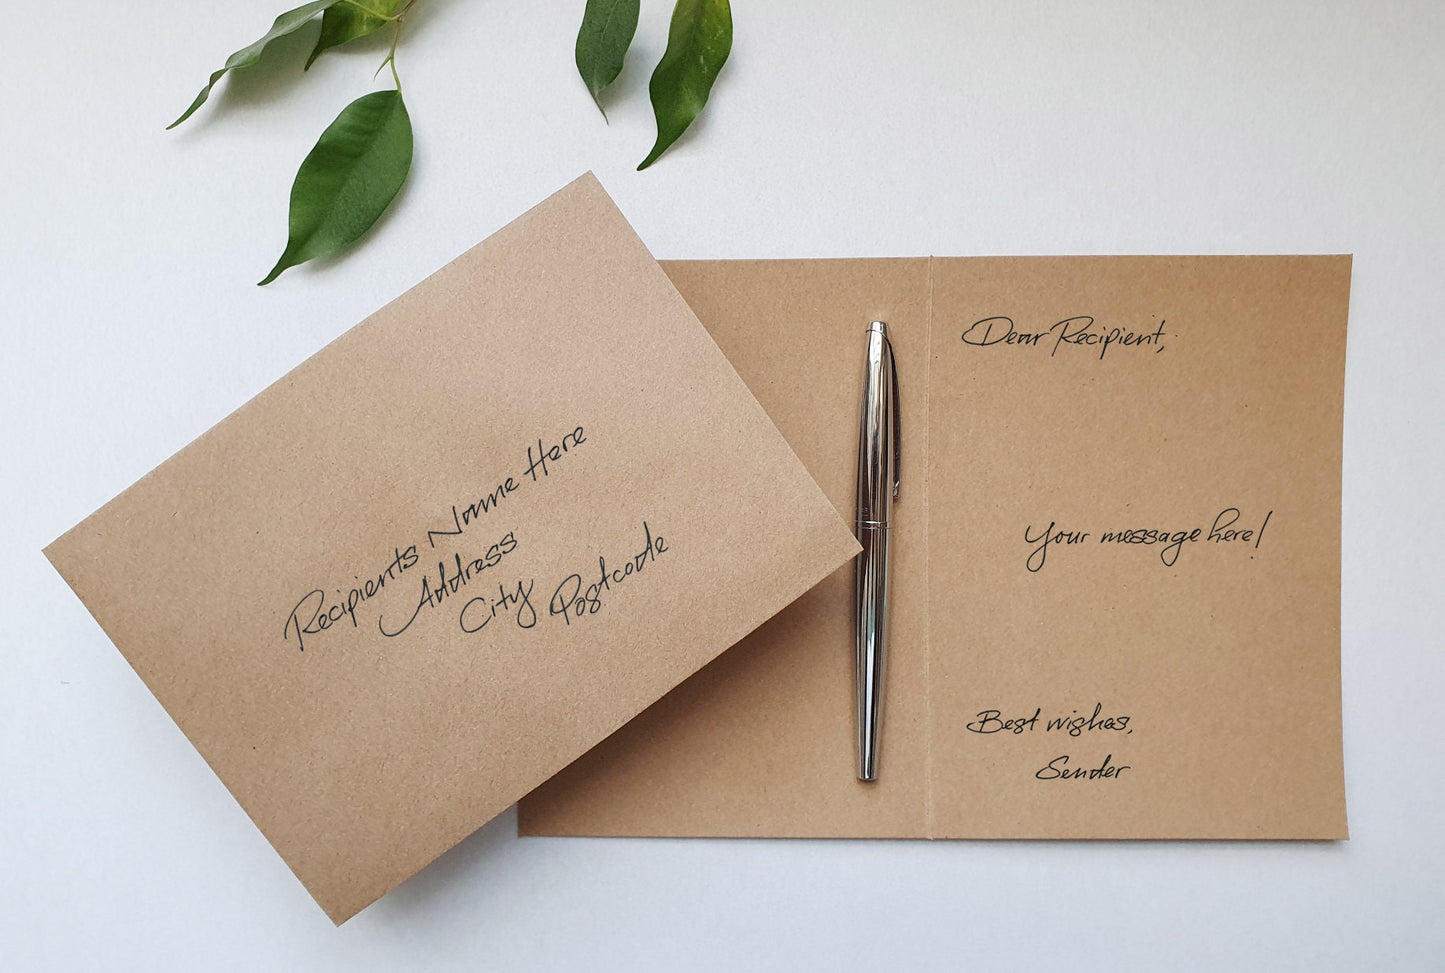 Recipients Name Here
Address
City Postcode
Dear Recipient,
Your message here!
Best wishes,
Sender